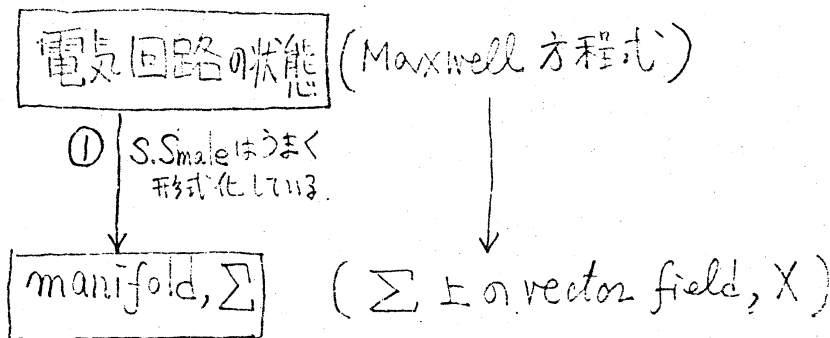 電気回路の状態 (Maxwell 方程式)
① S.Smaleはうまく
形式化している.
manifold, Σ (Σ上のvector field, X)